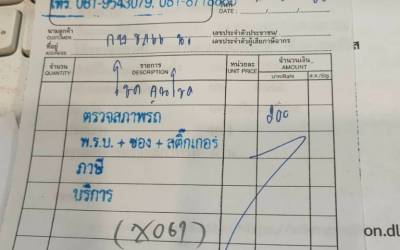 โทร. 081-9543079, 081-8718880
DATE
นามลูกค้า
CUSTOMER
เลขประจำตัวประชาชน/
เลขประจำตัวผู้เสียภาษีอากร
ที่อยู่
ADDRESS
จำนวน รายการ หน่วยละ จำนวนเงิน
QUANTITY DESCRIPTION UNIT PRICE AMOUNT
บาท/Baht ส.ต./Stg.
ตรวจสภาพรถ 200
พ.ร.บ. + ซอง + สติ๊กเกอร์
ภาษี
บริการ
(X069)
on.dl